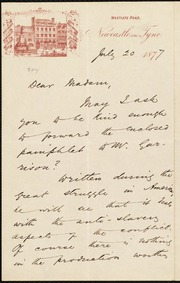 WESTGATE ROAD,
Newcastle-on-Tyne
July 20 1877
Dear Madam,
May I ask
you to be kind enough
to forward the enclosed
pamphlet to Mr. Gar-
rison?
Written during the
great struggle in America,
it will be that it deals
with the anti-slavery
aspects of the conflict.
Of course there is nothing
in the production worthy